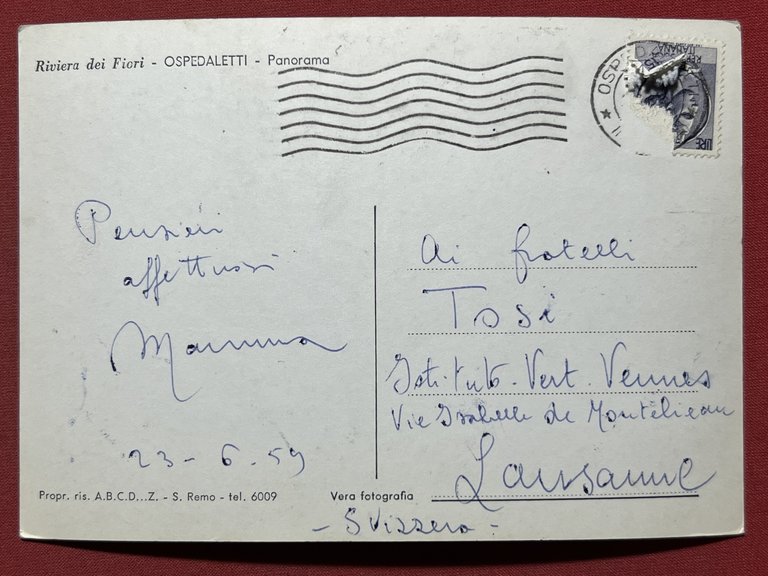 Riviera dei Fiori - OSPEDALETTI - Panorama
OSPED
REP
ITALIANA
LIRE
Pensieri
affettuosi
Mamma
23-6.59
Ai fratelli
Tosi
Istituto-Vert-Vennes
Vie Isabelle de Montélieau
Lausanne
- Svizzera -
Propr. ris. A.B.C.D...Z. - S. Remo - tel. 6009
Vera fotografia